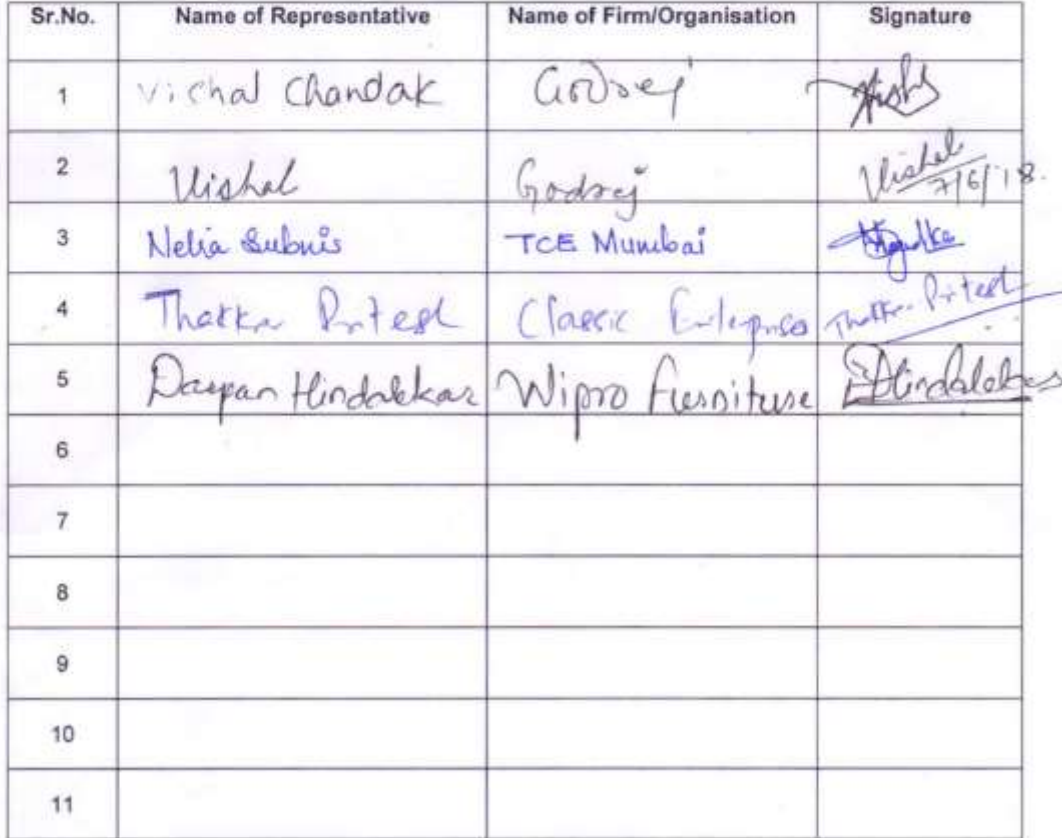 Sr.No. Name of Representative Name of Firm/Organisation Signature
1 Vichal Chandak Godrej
2 Vishal Godrej Vishal 7/6/18.
3 Nelia Subnis TCE Mumbai
4 Thakkar Pritesh Classic Enterprises Thakkar Pritesh
5 Darpan Hindalekar Wipro Furniture Hindalekar
6
7
8
9
10
11